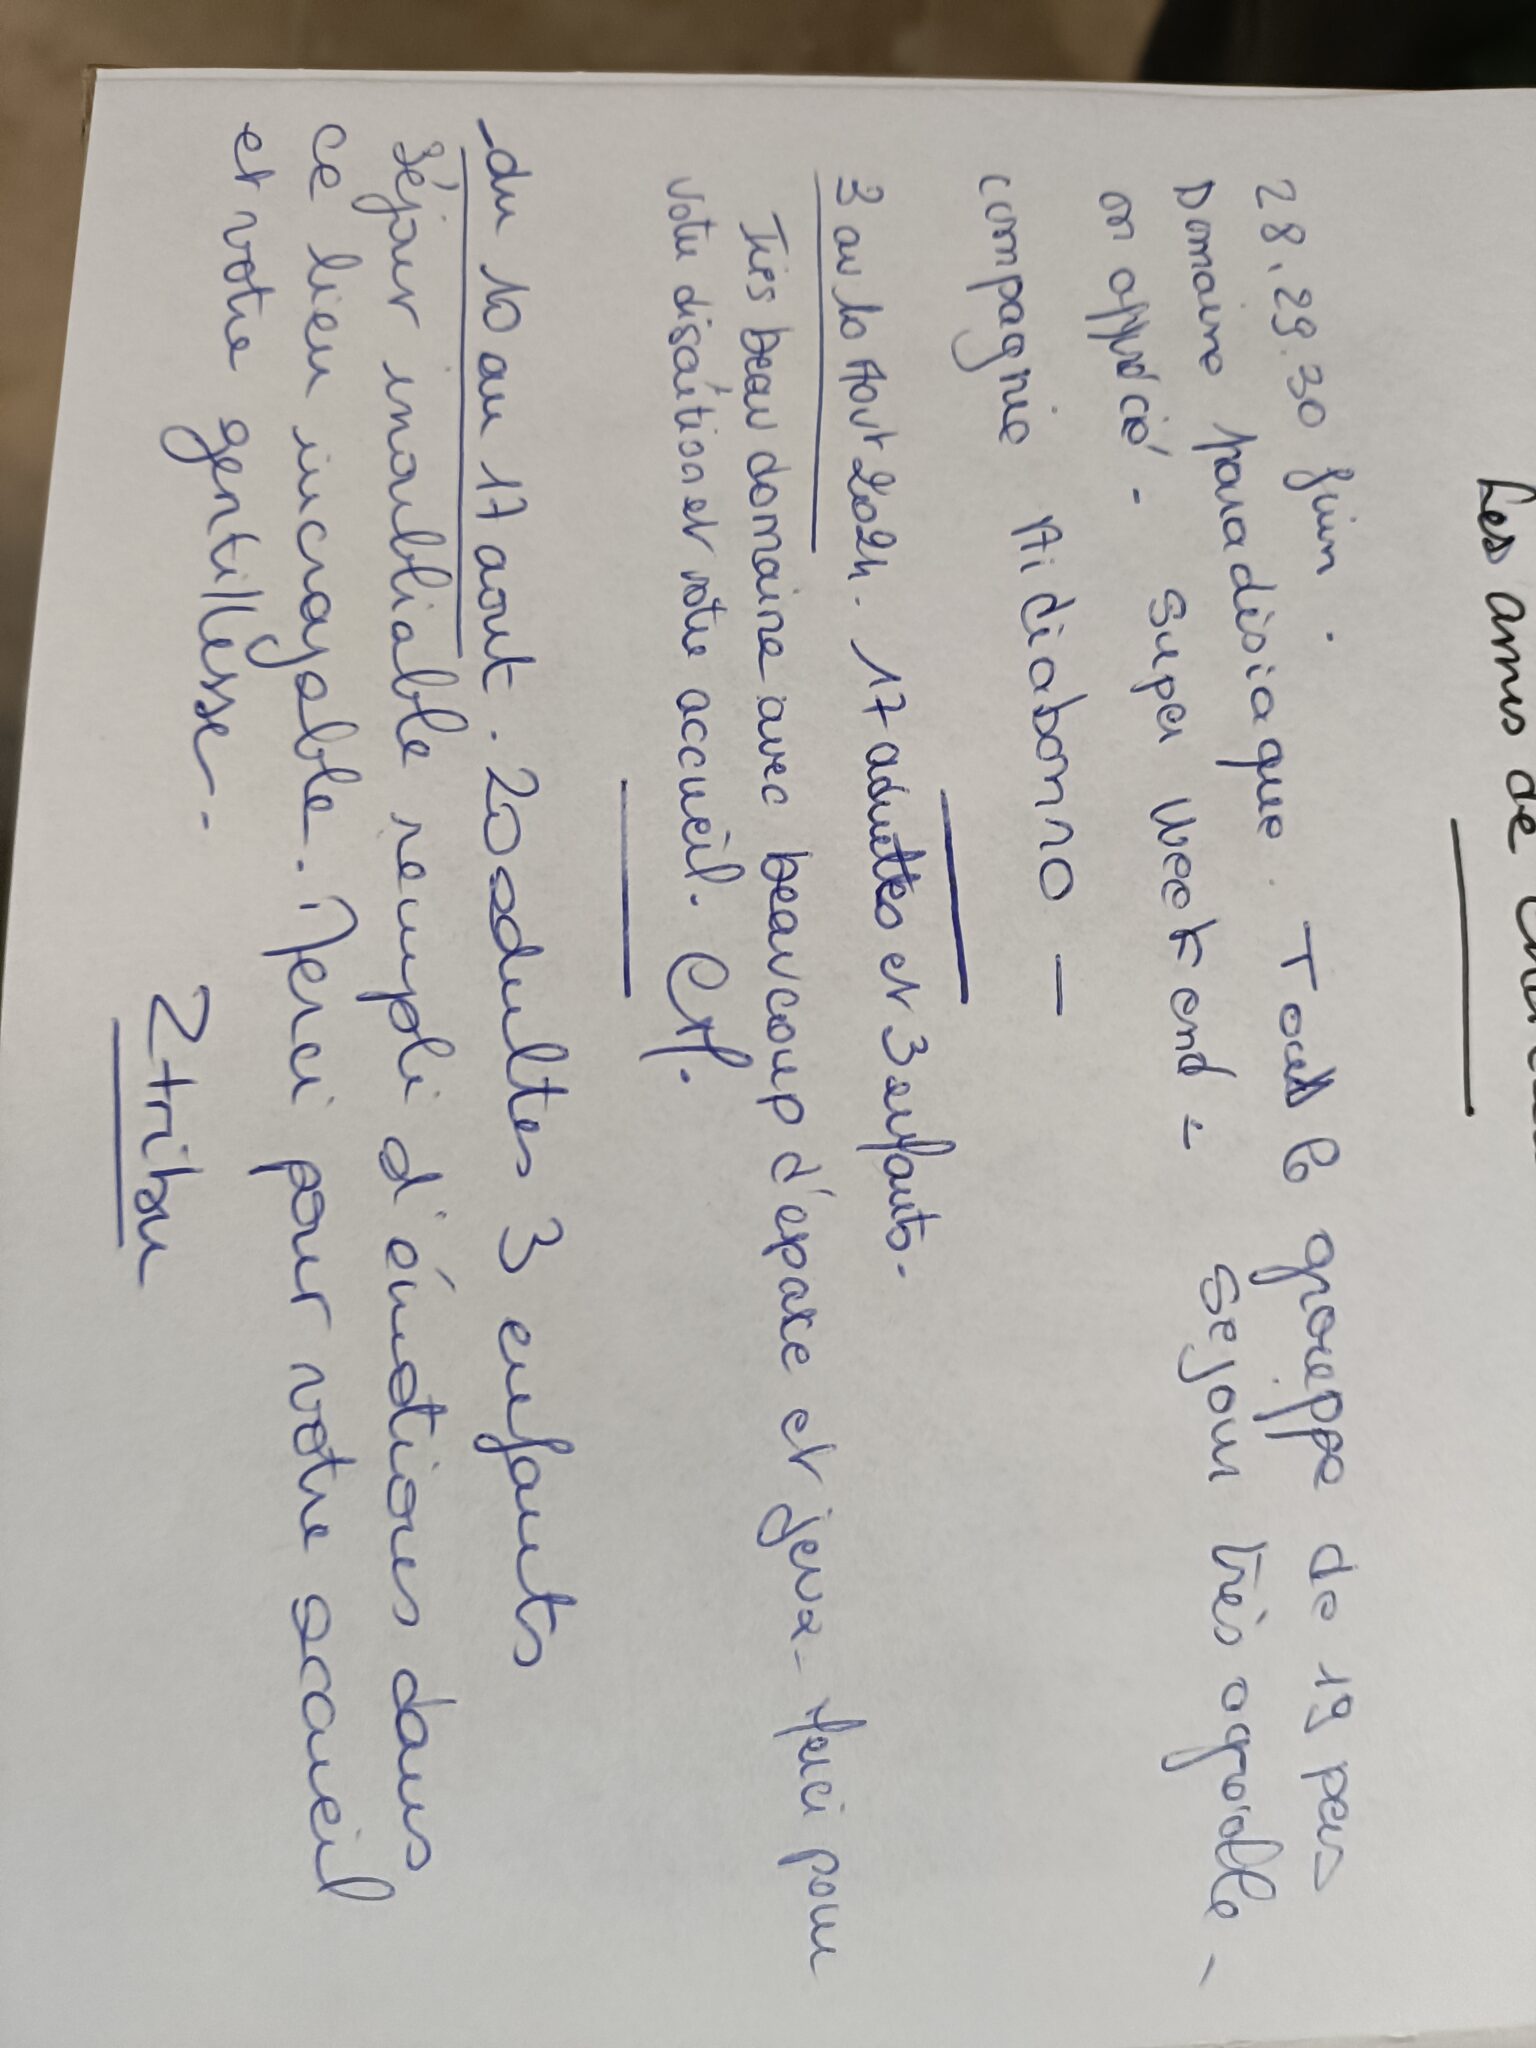 Les amis de
28.29.30 juin.
Domaine paradisiaque. Touts le grouppe de 19 pers
on apprécié - Super Week end - Sejour très agréable -
compagnie Aidiabonno -
3 au 10 Aout 2024. 17 adultes et 3 enfants.
Très beau domaine avec beaucoup d'espace et jeux - Merci pour
votre discrétion et votre accueil. CM.
-du 10 au 17 aout. 20 adultes 3 enfants
Séjour inoubliable rempli d'émotions dans
ce lieu incroyable. Merci pour votre accueil
et votre gentillesse.
2tribu